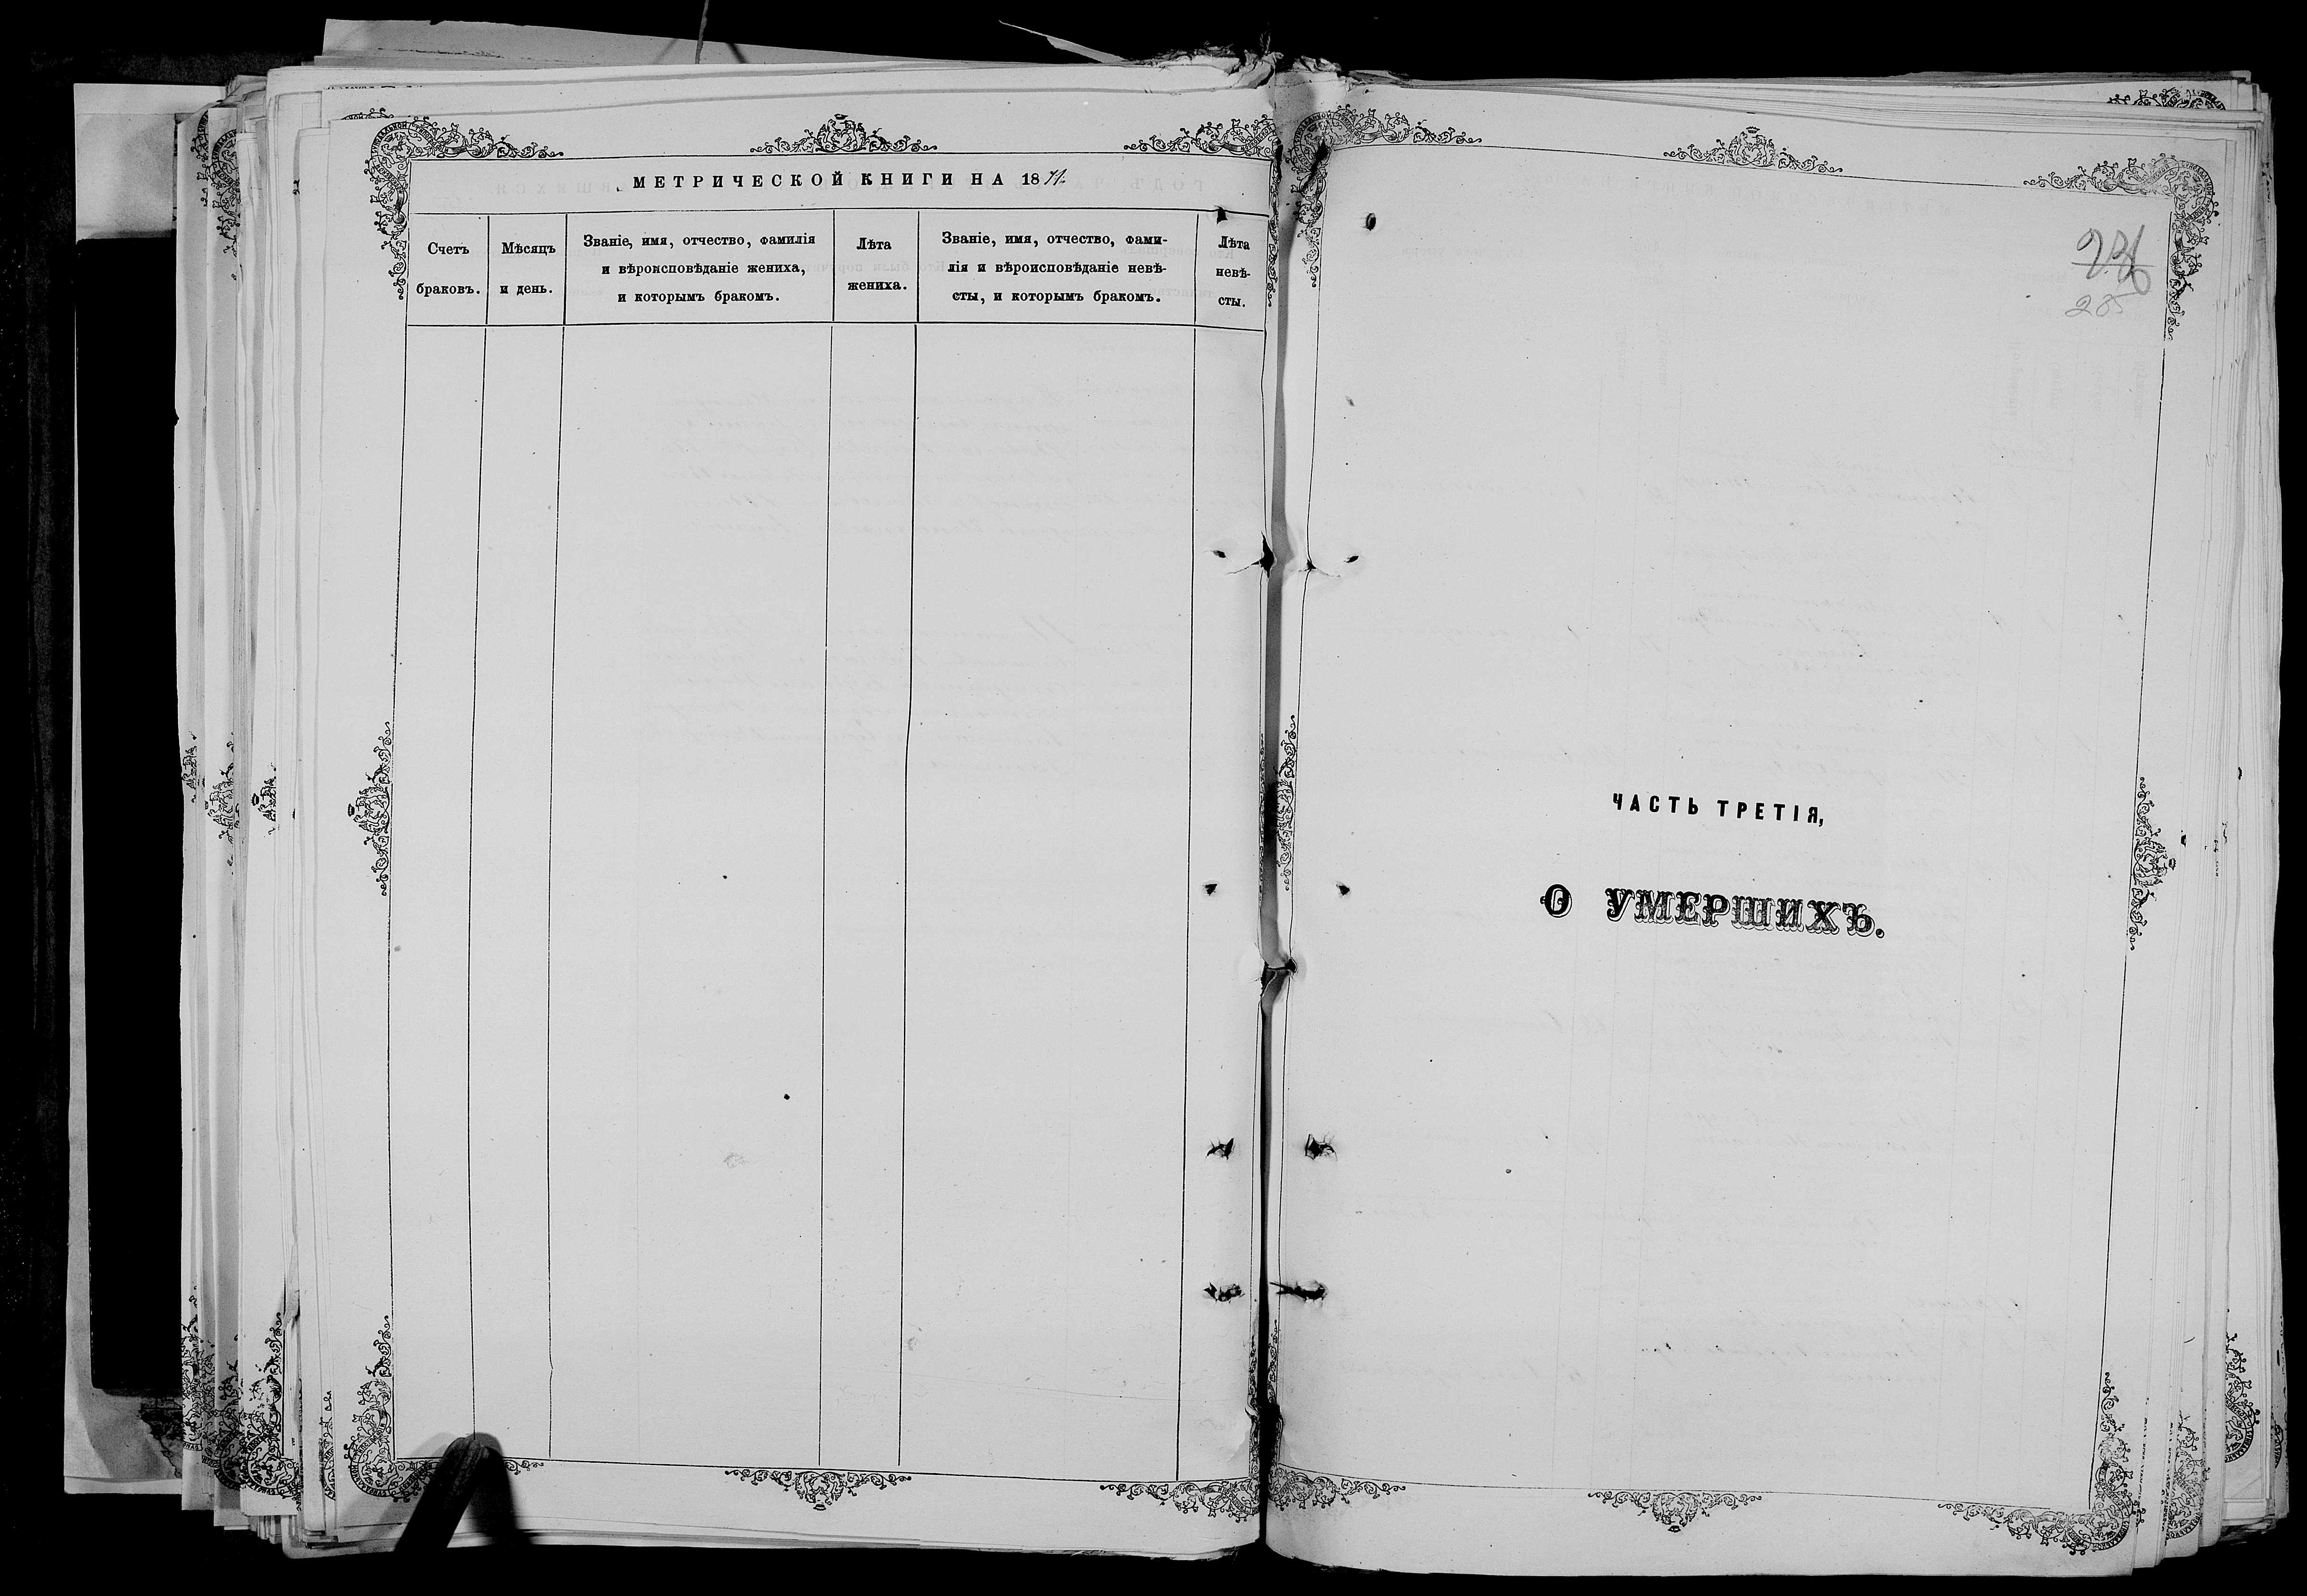 МЕТРИЧЕСКОЙ КНИГИ НА 1871.
Счетъ
браковъ.
Мѣсяцъ
и день.
Званіе, имя, отчество, фамилія
и вѣроисповѣданіе жениха,
и которымъ бракомъ.
Лѣта
жениха.
Званіе, имя, отчество, фами-
лія и вѣроисповѣданіе невѣ-
сты, и которымъ бракомъ.
Лѣта
невѣ-
сты.
285
ЧАСТЬ ТРЕТІЯ,
О УМЕРШИХЪ.